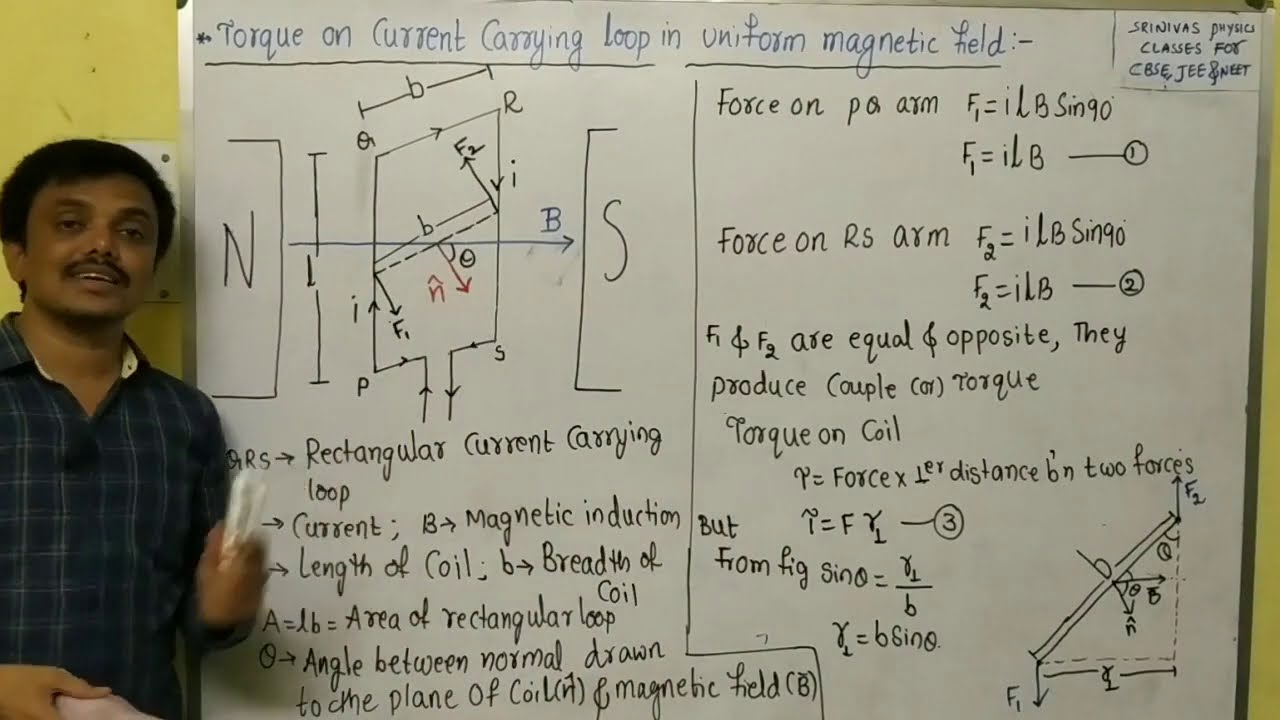 * Torque on Current Carrying loop in uniform magnetic field:-
SRINIVAS PHYSICS
CLASSES FOR
CBSE, JEE & NEET
b
Q
R
F2
i
N
l
b
B
S
θ
n̂
i
F1
P
S
QRS → Rectangular Current Carrying
loop
→ Current; B → Magnetic induction
→ Length of Coil; b → Breadth of
Coil
A=lb= Area of rectangular loop
θ → Angle between normal drawn
to the plane Of Coil(n̂) & magnetic field (B)
Force on PQ arm F1 = ilB Sin90
F1 = ilB —— ①
Force on RS arm F2 = ilB Sin90
F2 = ilB —— ②
F1 & F2 are equal & opposite, They
produce Couple (or) Torque
Torque on Coil
τ = Force x ⊥er distance b'n two forces
But τ = F r⊥ —— ③
From fig Sinθ = r⊥/b
r⊥ = b Sinθ
F2
θ
b
θ
B
n̂
F1
r⊥